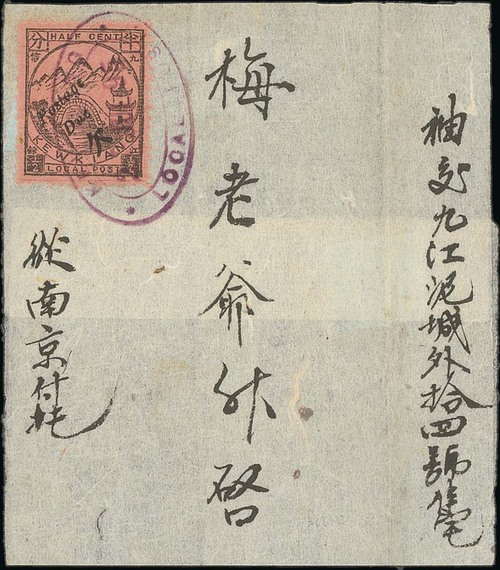 袖交九江泥城外拾四號住宅
梅老爺升啓
從南京付托
分 HALF CENT 半
Postage
Due
欠
KEWKIANG
LOCAL POST
LOCAL